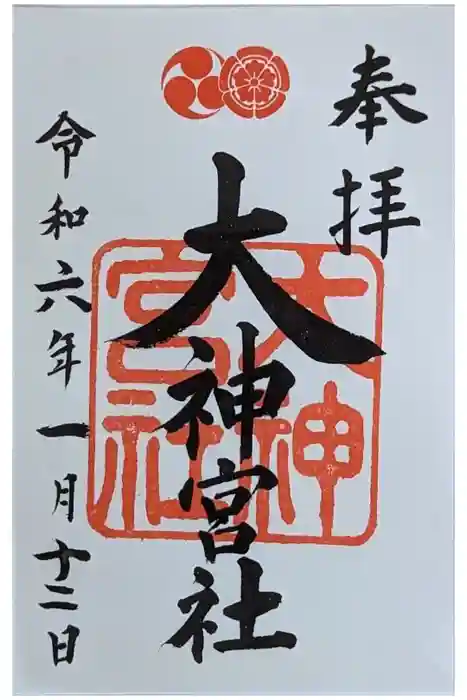 奉拝
大神宮社
大神宮社
令和六年一月十二日